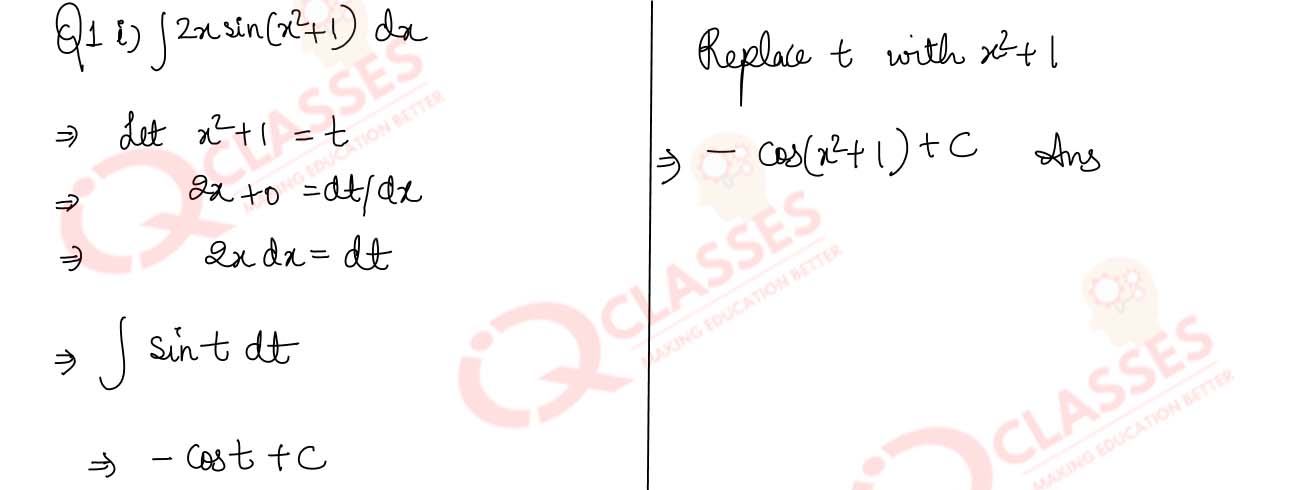 Q1 i) ∫2x sin(x²+1) dx
⇒ Let x²+1 = t
⇒ 2x+0 = dt/dx
⇒ 2x dx = dt
⇒ ∫ sin t dt
⇒ - cos t + C
Replace t with x²+1
⇒ - cos(x²+1) + C Ans
iQ CLASSES
MAKING EDUCATION BETTER
iQ CLASSES
MAKING EDUCATION BETTER
iQ CLASSES
MAKING EDUCATION BETTER